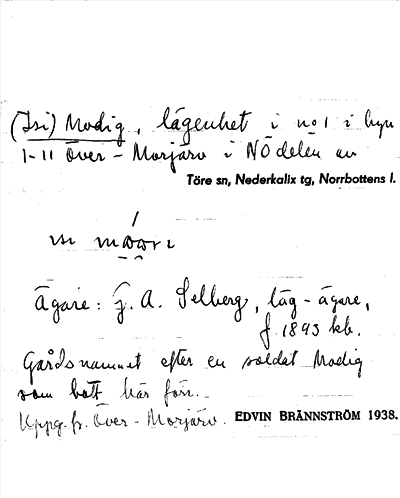 (Isi) Modig, lägenhet i nº 1 i byn
1-11 Över-Morjärv i NÖ delen av
Töre sn, Nederkalix tg, Norrbottens l.
Ägare: J. A. Selberg, läg-ägare,
f. 1893 kb.
Gårdsnamnet efter en soldat Modig
som bott här förr.
Uppg. fr. Över-Morjärv. EDVIN BRÄNNSTRÖM 1938.